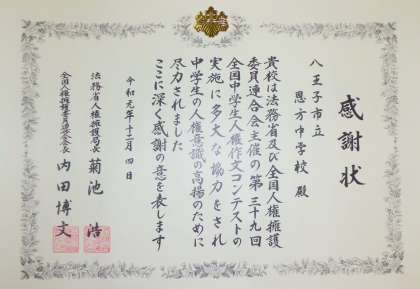 感謝状
八王子市立
恩方中学校 殿
貴校は法務省及び全国人権擁護
委員連合会主催の第三十九回
全国中学生人権作文コンテストの
実施に多大な協力をされ
中学生の人権意識の高揚のために
尽力されました
ここに深く感謝の意を表します
令和元年十二月四日
法務省人権擁護局長 菊池浩
全国人権擁護委員連合会長 内田博文